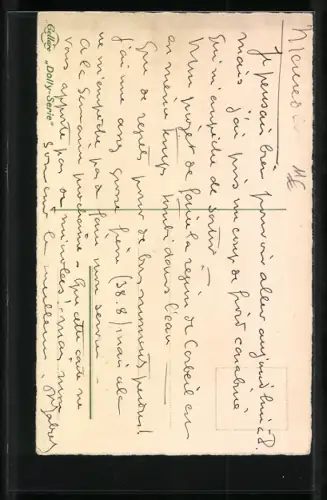 Mercredi
Je pensais bien pouvoir aller aujourd'hui à P.
mais j'ai pris un coup de froid carabiné
qui m'empêche de sortir
Mon projet de faire la région de Corbeil en
en même temps tombe dans l'eau
Que de regrets pour de bons moments perdus!
J'ai une assez grosse fièvre (38.8) mais cela
ne m'empêche pas de faire mon service.
A la semaine prochaine. Que cette carte ne
vous apporte pas de microbes! mais mon
souvenir le meilleur.
Cellaro "Dolly-Serie"